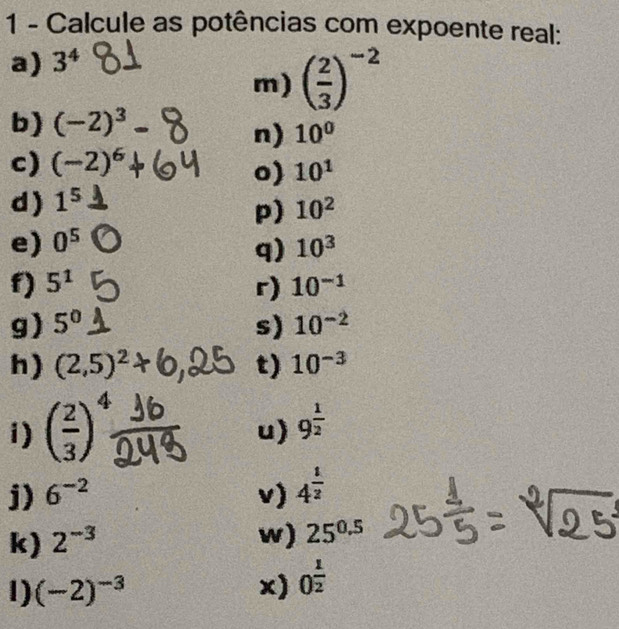 1 - Calcule as potências com expoente real:
a) 3⁴ 81
b) (−2)³ - 8
c) (−2)⁶ + 64
d) 1⁵ 1
e) 0⁵ 0
f) 5¹ 5
g) 5⁰ 1
h) (2,5)² + 6,25
i) (2/3)⁴ 16/243
j) 6⁻²
k) 2⁻³
l)(−2)⁻³
m) (2/3)⁻²
n) 10⁰
o) 10¹
p) 10²
q) 10³
r) 10⁻¹
s) 10⁻²
t) 10⁻³
u) 9^(1/2)
v) 4^(1/2)
w) 25^0,5 25 1/5 = ²√25
x) 0^(1/2)